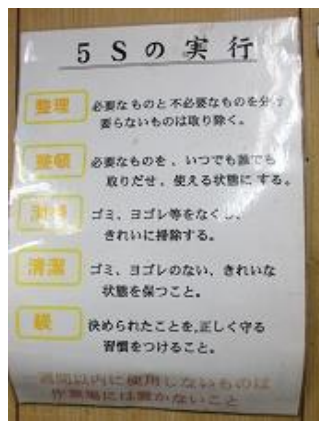 5Sの実行
整理
必要なものと不必要なものを分け
要らないものは取り除く。
整頓
必要なものを、いつでも誰でも
取りだせ、使える状態にする。
清掃
ゴミ、ヨゴレ等をなくし、
きれいに掃除する。
清潔
ゴミ、ヨゴレのない、きれいな
状態を保つこと。
躾
決められたことを,正しく守る
習慣をつけること。
週間以内に使用しないものは
作業場には置かないこと